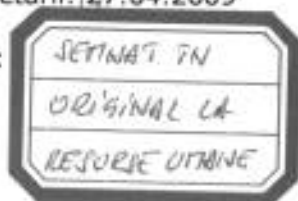 27.04.2009
SEMNAT IN
ORIGINAL LA
RESURSE UMANE